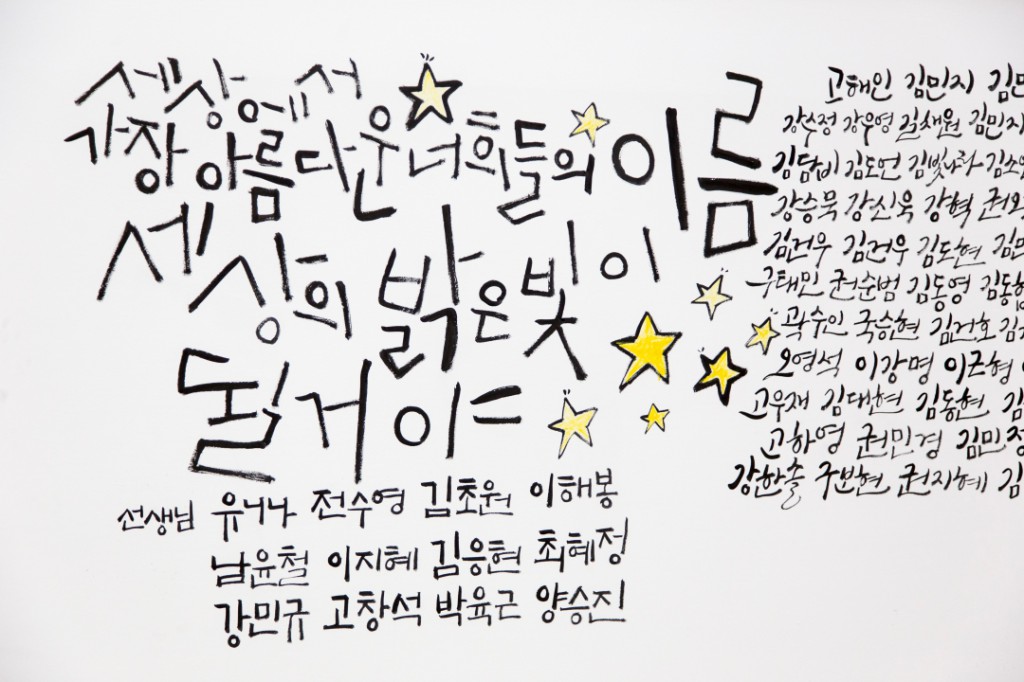 세상에서
가장 아름다운 너희들의 이름
세상의 밝은 빛이
될 거이ㅡ
선생님 유니나 전수영 김초원 이해봉
남윤철 이지혜 김응현 최혜정
강민규 고창석 박육근 양승진
고해인 김민지
강수정 강우영 길채원 김민지
김담비 김도언 김빛나라
강승묵 강신욱 강혁
김건우 김건우 김도현
구태민 권순범 김동영
곽수인 국승현 김건호
오영석 이강명 이근형
고우재 김대현 김동현
고하영 권민경 김민정
강한솔 구보현 권지혜